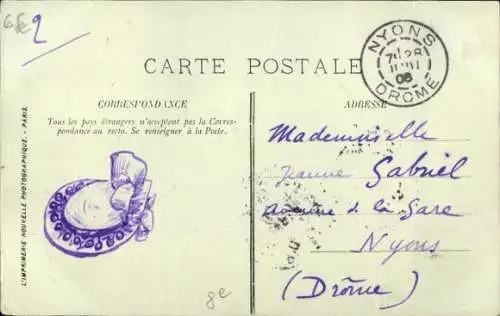 2
NYONS
7E 28
06
DROME
CARTE POSTALE
CORRESPONDANCE
Tous les pays étrangers n'acceptent pas la Corres-
pondance au recto. Se renseigner à la Poste.
ADRESSE
Mademoiselle
Jeanne Gabriel
Avenue de la Gare
Nyons
(Drôme)
L'IMPRIMERIE NOUVELLE PHOTOGRAPHIQUE. - PARIS.
8e